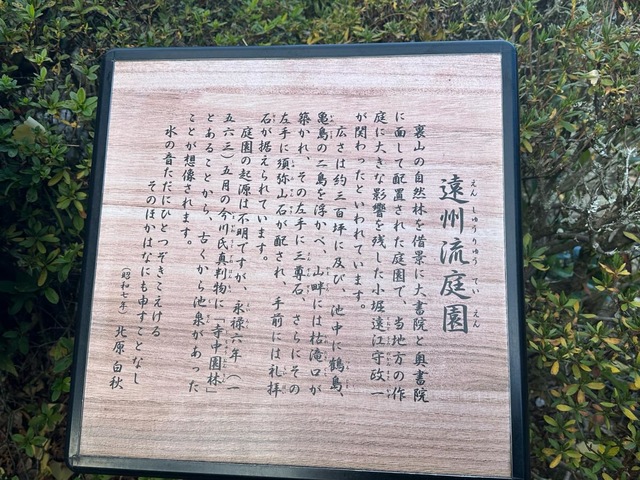 遠州流庭園
えんしゅうりゅうていえん
裏山の自然林を借景に大書院と奥書院
に面して配置された庭園で、当地方の作
庭に大きな影響を残した小堀遠江守政一
が関わったといわれています。
広さは約三百坪に及び、池中に鶴島、
亀島の二島を浮かべ、山畔には枯滝口が
築かれ、その左手に三尊石、さらにその
左手に須弥山石が配され、手前には礼拝
石が据えられています。
庭園の起源は不明ですが、永禄六年(一
五六三)五月の今川氏真判物に「寺中園林」
とあることから、古くから池泉があった
ことが想像されます。
水の音ただにひとつぞきこえける
そのほかはなにも申すことなし
(昭和七年) 北原白秋